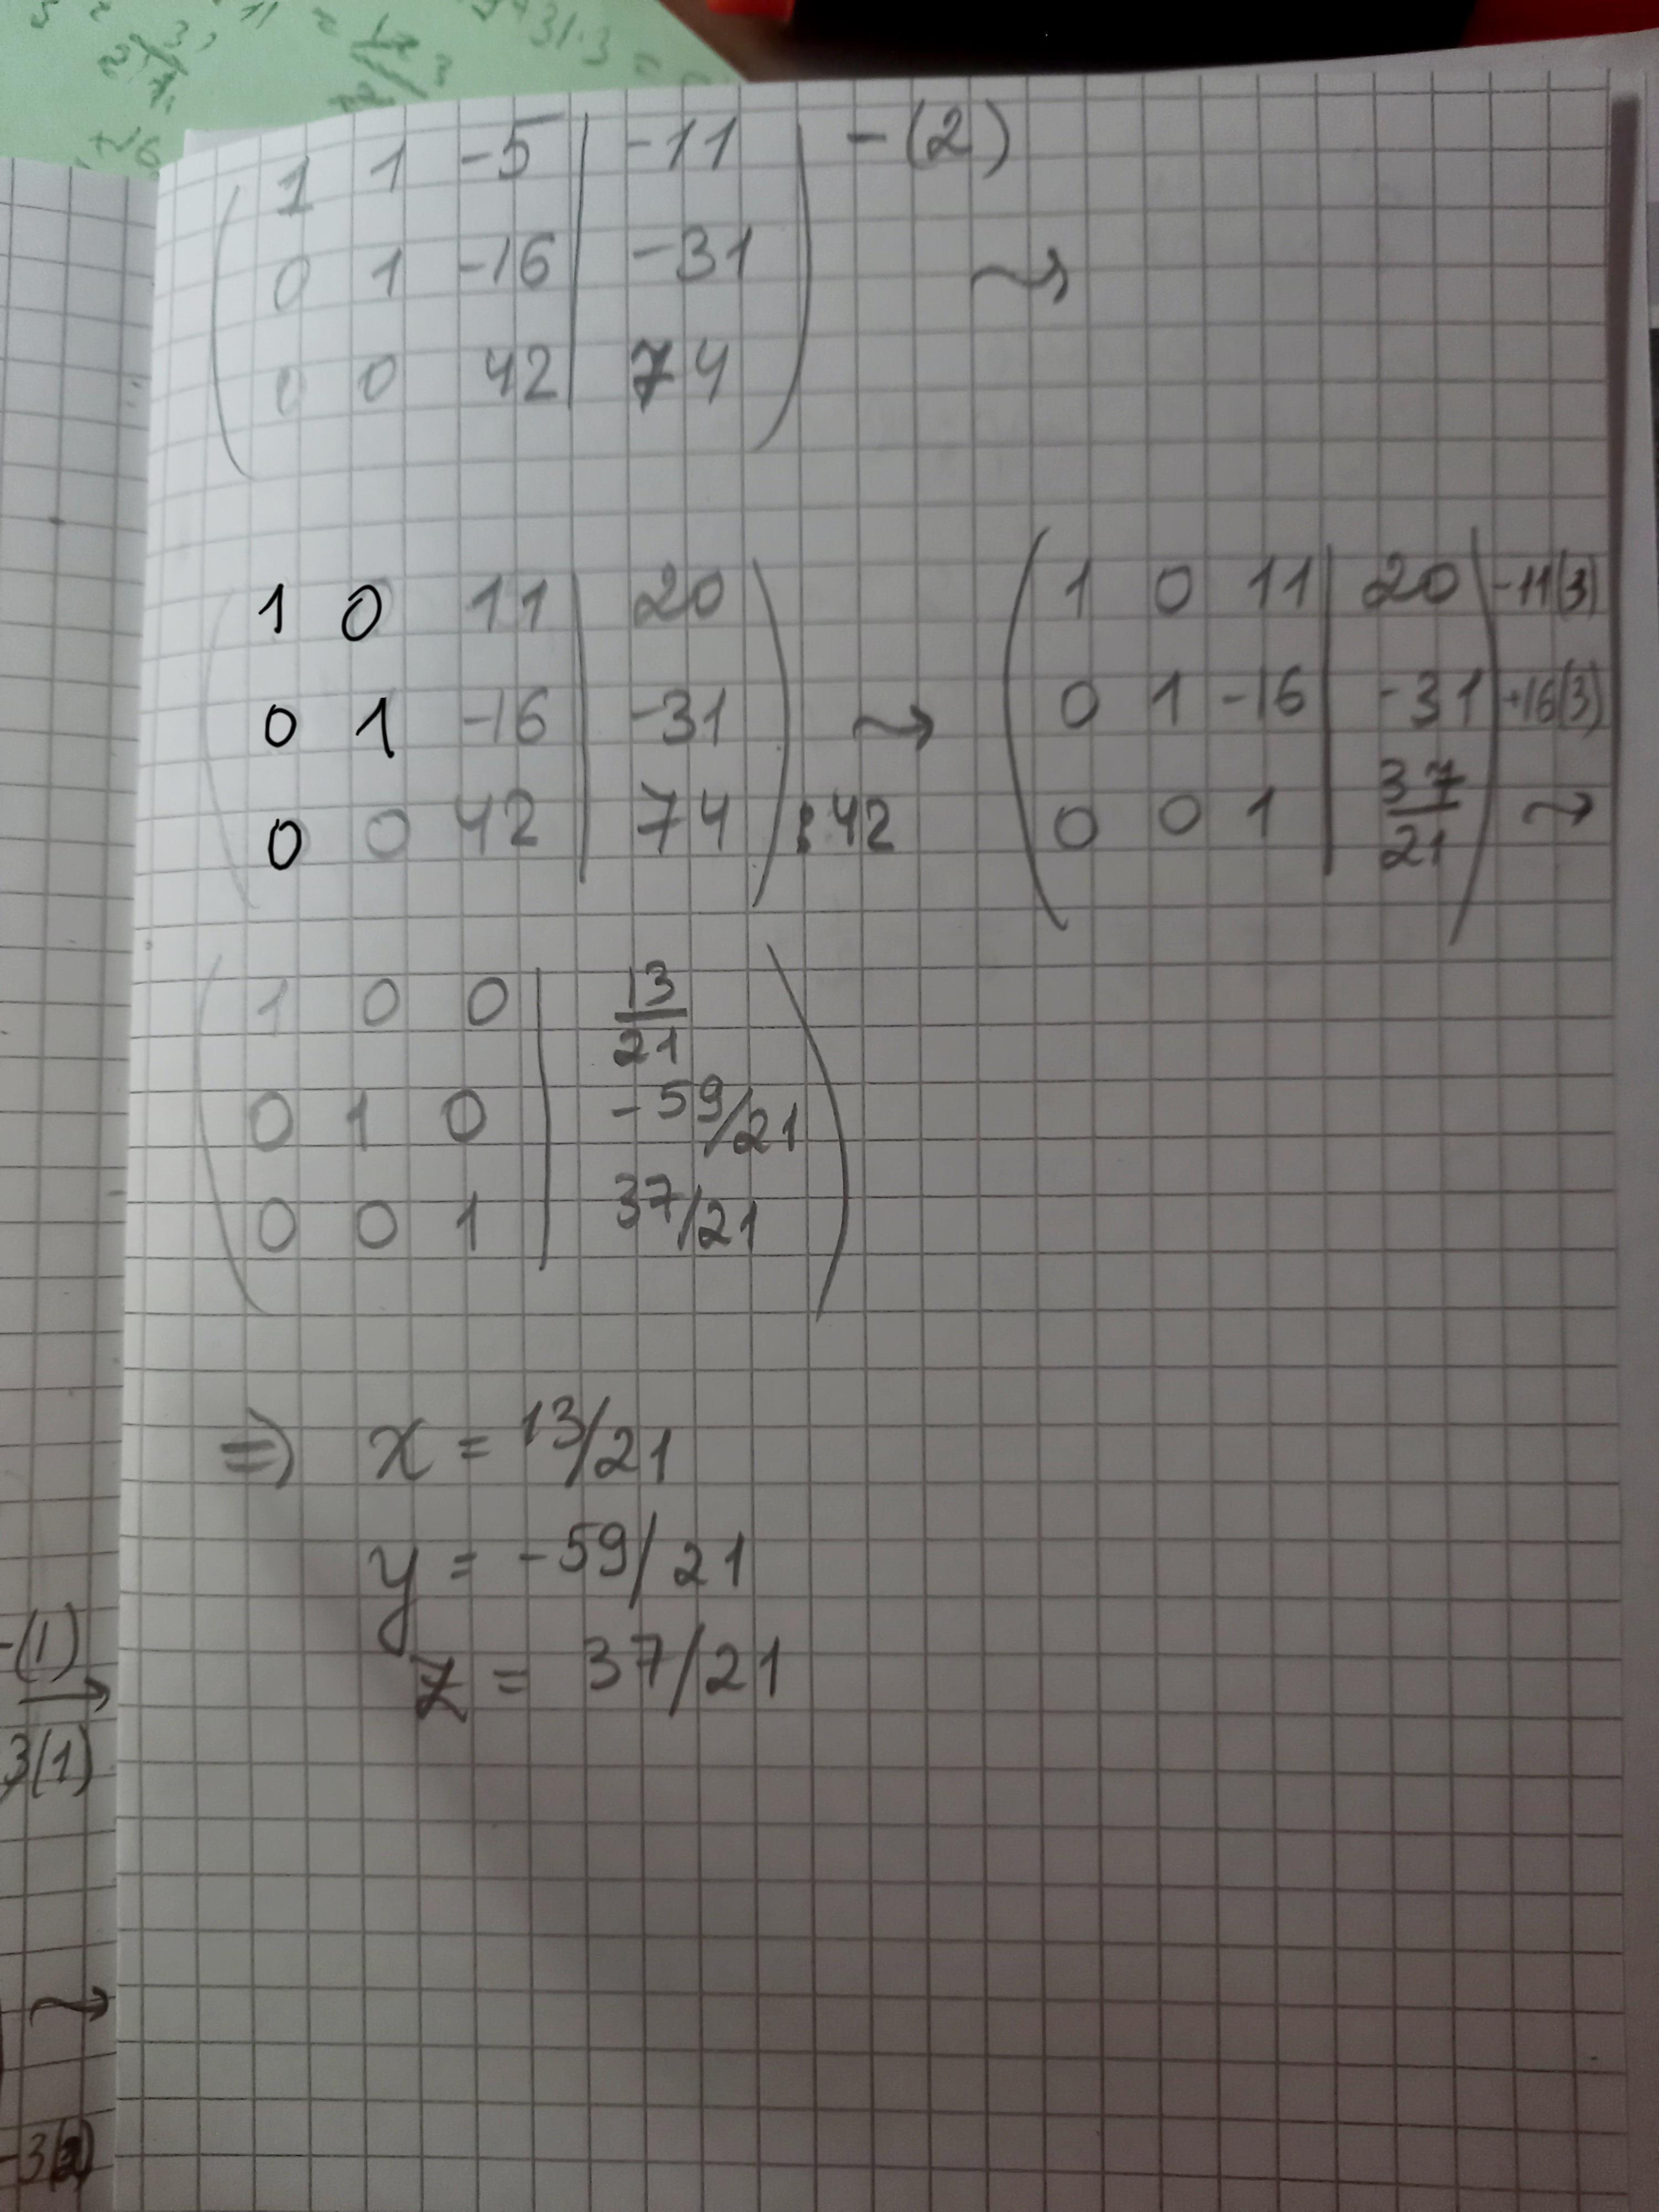 1 1 -5 | -11 -(2)
0 1 -16 | -31 ⇝
0 0 42 | 74
1 0 11 | 20
0 1 -16 | -31 ⇝
0 0 42 | 74 :42
1 0 11 | 20 -11(3)
0 1 -16 | -31 +16(3)
0 0 1 | 37/21 ⇝
1 0 0 | 13/21
0 1 0 | -59/21
0 0 1 | 37/21
⇒ x = 13/21
y = -59/21
z = 37/21
-(1)
3(1)